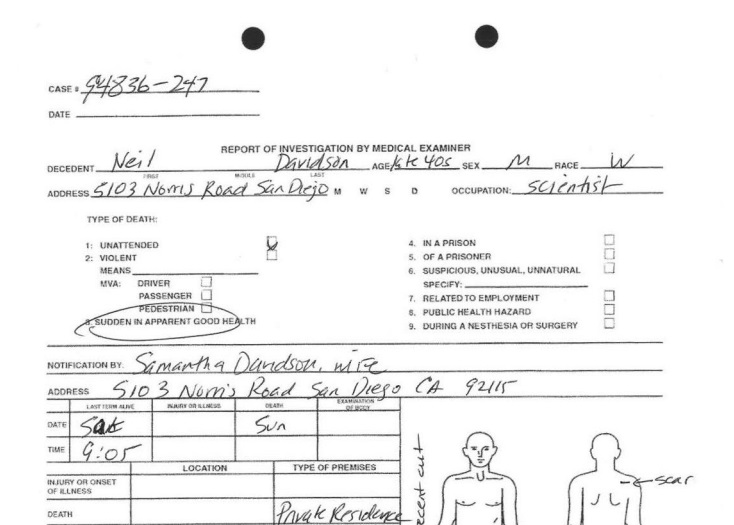 CASE # 94836-247
DATE
REPORT OF INVESTIGATION BY MEDICAL EXAMINER
DECEDENT Neil Davidson AGE late 40s SEX M RACE W
FIRST MIDDLE LAST
ADDRESS 5103 Norris Road San Diego M W S D OCCUPATION: Scientist
TYPE OF DEATH:
1: UNATTENDED
2: VIOLENT
MEANS
MVA: DRIVER
PASSENGER
PEDESTRIAN
3. SUDDEN IN APPARENT GOOD HEALTH
4. IN A PRISON
5. OF A PRISONER
6. SUSPICIOUS, UNUSUAL, UNNATURAL
SPECIFY:
7. RELATED TO EMPLOYMENT
8. PUBLIC HEALTH HAZARD
9. DURING A NESTHESIA OR SURGERY
NOTIFICATION BY: Samantha Davidson, wife
ADDRESS 5103 Norris Road San Diego CA 92115
LAST ALIVE INJURY OR ILLNESS DEATH EXAMINATION OF BODY
DATE Sat Sun
TIME 9:05
LOCATION TYPE OF PREMISES
INJURY OR ONSET OF ILLNESS
DEATH Private Residence
recent cut
scar